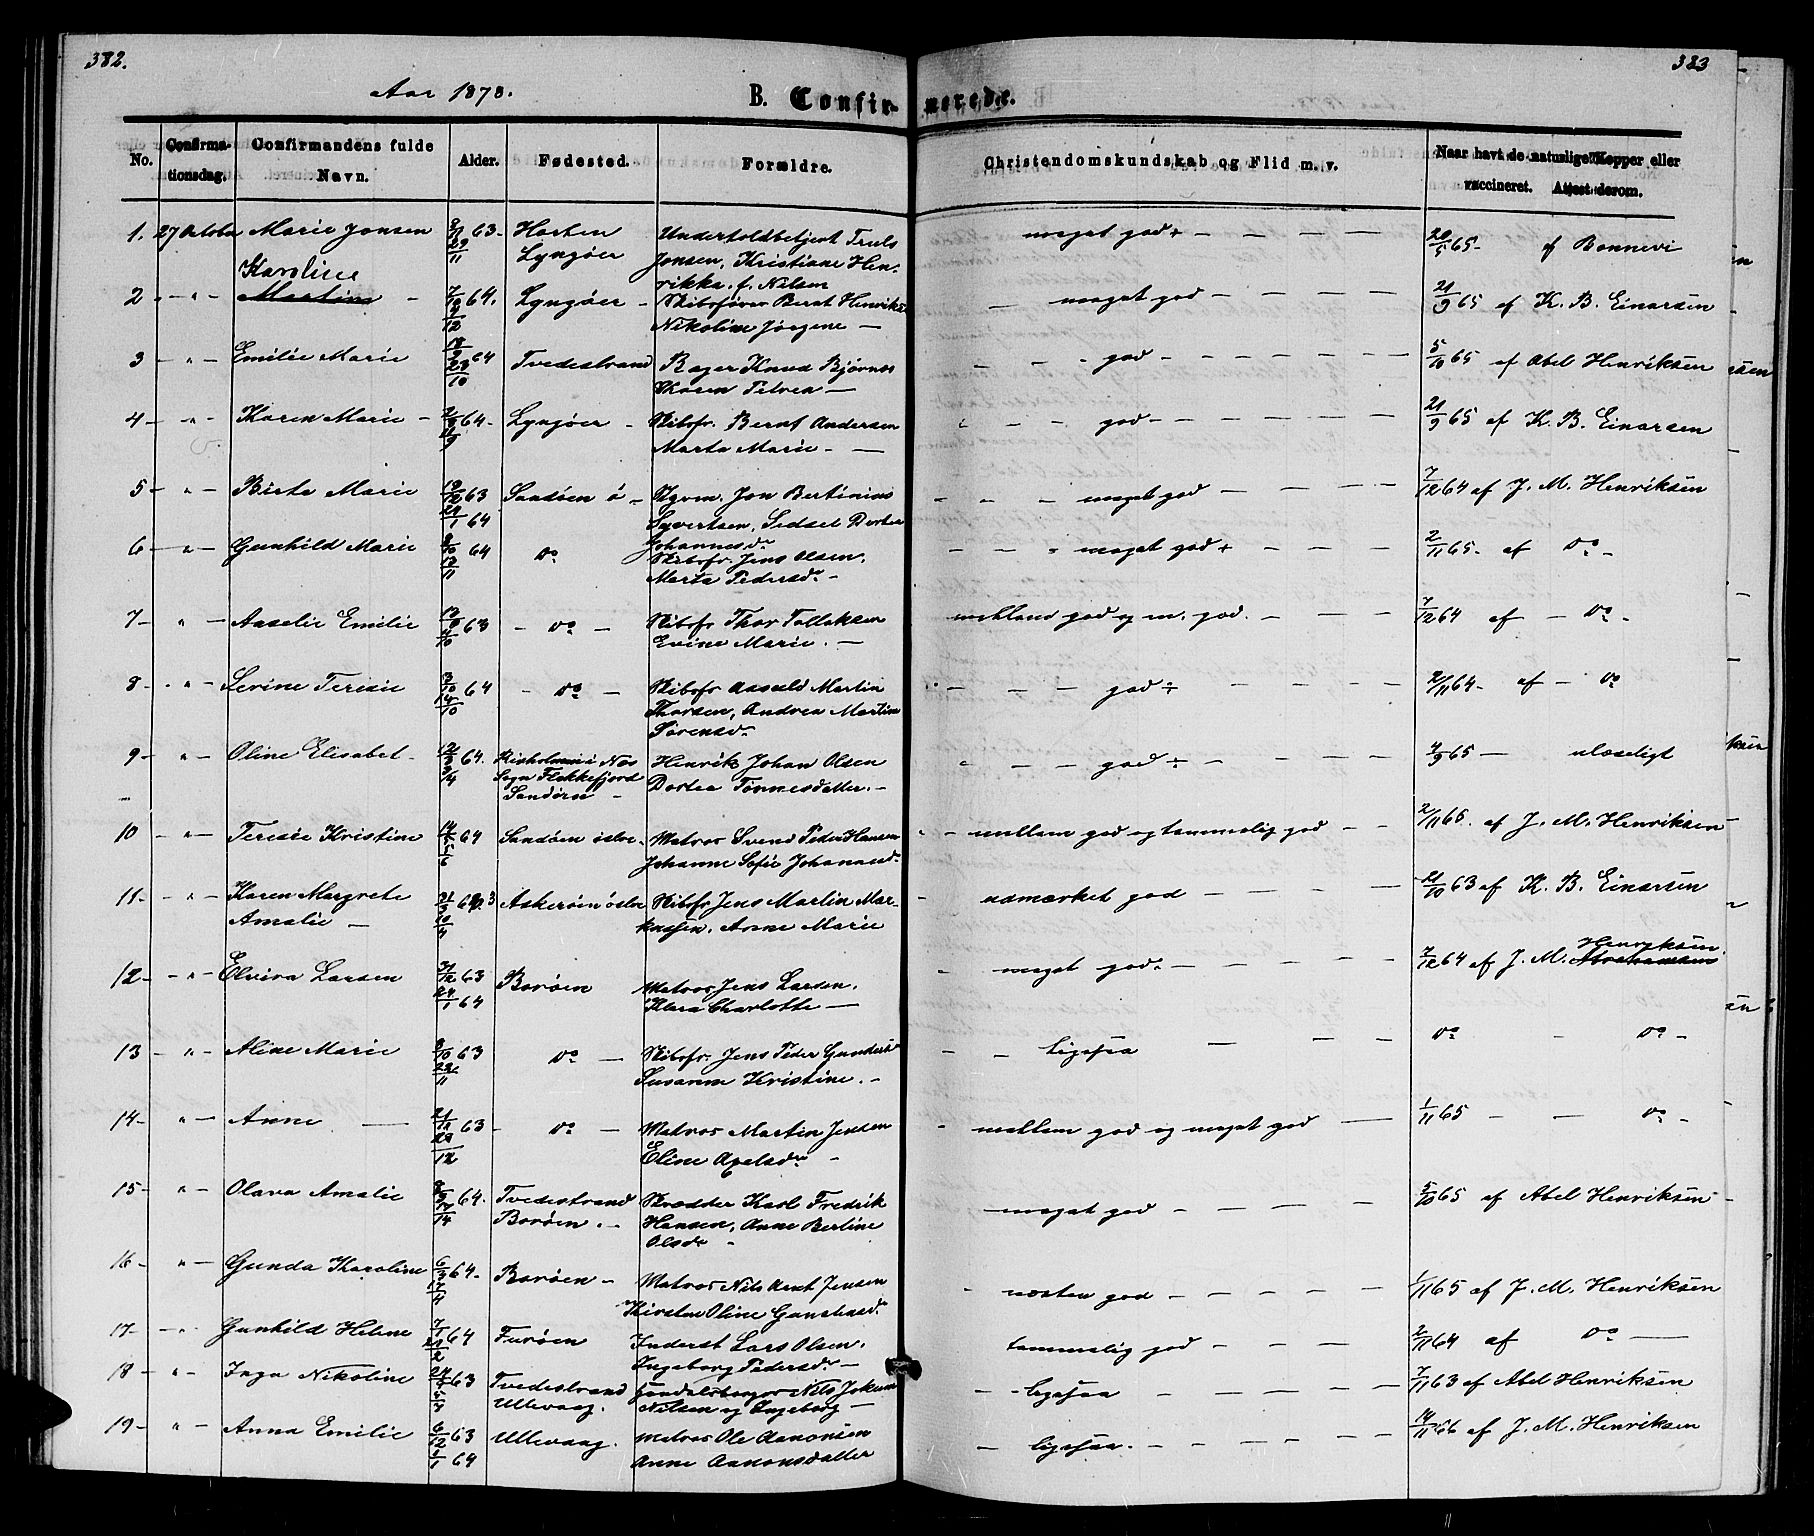 382.
383
Aar 1878.
B. Confir-
merede.
No.
Confirma-
tionsdag.
Confirmandens fulde
Navn.
Alder.
Fødested.
Forældre.
Christendomskundskab og Flid m. v.
Naar havt de naturlige Kopper eller
vaccineret. Attest derom.
1. 27 October Marie Jonsen 63 Lyngøer
Undertoldbetjent Truls
Jonsen, Kristiane Hen-
rikka f. Nilsen
meget god + 65 af Bonnevi
Karoline
2 Martine 64. Lyngøer
Skibsfører Bernt Henriks
Nikoline Jørgene
meget god 21/9 65 af K. B. Einarsen
3 Emilie Marie 64 Tvedestrand
Bager Knud Bjørnes
Karen Petrea
god 5/10 65 af Abel Henriksen
4 Karen Marie 64 Lyngøer
Skibsfr. Bernt Andersen
Marta Marie
god 21/9 65 af K. B. Einarsen
5 Birte Marie 63 Sandøen ø
24/1 64
Jon Bertinius
Syvertsen, Sidsel Dortea
Johannesdr
meget god 7/12 64 af J. M. Henriksen
6 Gunhild Marie 64 do
Skibsfr. Jens Olsen,
Marta Pedersdr
meget god + 2/11 65 af do
7 Aaselie Emilie 63 do
Skibsfr Thor Tallaksen
Evine Marie
mellem god og m. god. 7/12 64 af do
8 Serine Teresie 64 do
Skibsfr Aasuld Martin
Thorsen, Andrea Martine
Sørensdr
god ÷ 2/11 64 af do
9 Oline Elisabet 64.
Sogn Flekkefjord
Sandøen
Henrik Johan Olsen
Dortea Tønnesdatter.
god ÷ 4/9 65 ulæseligt
10 Teresie Kristine 64 Sandøen østre
Matros Svend Peder Hansen
Johanne Sofie Johannesdr
mellem god og temmelig god 2/11 65 af J. M. Henriksen
11 Karen Margrete
Amalie
Askerøen østre
Skibsfr Jens Martin Mar-
kussen, Anne Marie
udmærket god 21/10 63 af K. B. Einarsen
12 Elvira Larsen 63 Borøen
24/1 64
Matros Jens Larsen,
Klara Charlotte
meget god 7/12 64 af J. M. Henriksen
13 Aline Marie 63 do
Skibsfr. Jens Peder Gunders
Susanne Kristine.
ligesaa do do
14 Anne 63 do
Matros Martin Jensen
Eline Axelsdr
mellem god og meget god 1/11 65 do
15 Olava Amalie 64. Tvedestrand
Borøen.
Skrædder Karl Fredrik
Hansen, Anne Bertine
Olsdr
meget god 5/10 65 af Abel Henriksen
16 Gunda Karoline 64 Borøen
Matros Nils Arnt Jensen
Kirsten Oline Gunstensdr
næsten god 1/11 65 af J. M. Henriksen
17 Gunhild Helene 64 Furøen
Inderst Lars Olsen,
Ingeborg Pedersdr
temmelig god 2/11 64 af do
18 Inga Nikoline 63 Tvedestrand
Ullevaag.
Nils Jokum
Nilsen og Ingeborg
ligesaa 7/11 63 af Abel Henriksen
19 Anna Emilie 6/12 63 Ullevaag.
64
Matros Ole Aanonsen
Anne Aanonsdatter
ligesaa. 14/11 66 af J. M. Henriksen